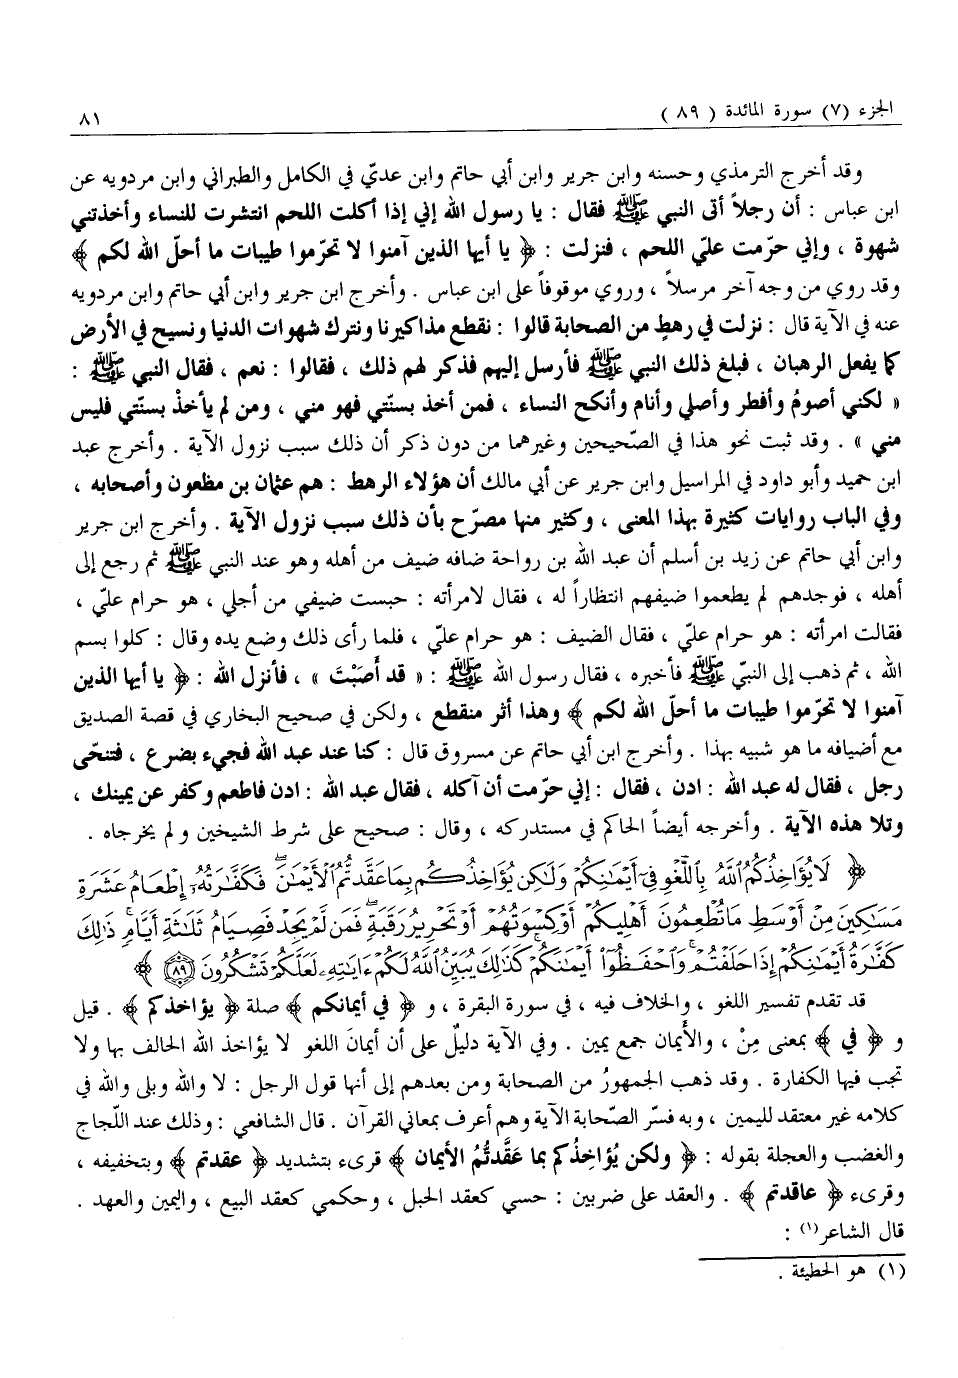 الجزء (٧) سورة المائدة ( ٨٩ ) ٨١
وقد أخرج الترمذي وحسنه وابن جرير وابن أبي حاتم وابن عديّ في الكامل والطبراني وابن مردويه عن
ابن عباس : أن رجلاً أتى النبي ﷺ فقال : يا رسول الله إني إذا أكلت اللحم انتشرت للنساء وأخذتني
شهوة ، وإني حرّمت عليّ اللحم ، فنزلت : ﴿ يا أيها الذين آمنوا لا تحرّموا طيبات ما أحلّ الله لكم ﴾
وقد روي من وجه آخر مرسلاً ، وروي موقوفاً على ابن عباس . وأخرج ابن جرير وابن أبي حاتم وابن مردويه
عنه في الآية قال : نزلت في رهطٍ من الصحابة قالوا : نقطع مذاكيرنا ونترك شهوات الدنيا ونسيح في الأرض
كما يفعل الرهبان ، فبلغ ذلك النبي ﷺ فأرسل إليهم فذكر لهم ذلك ، فقالوا : نعم ، فقال النبي ﷺ :
« لكني أصومُ وأفطر وأصلي وأنام وأنكح النساء ، فمن أخذ بسنّتي فهو مني ، ومن لم يأخذْ بسنّتي فليس
مني » . وقد ثبت نحو هذا في الصّحيحين وغيرهما من دون ذكر أن ذلك سبب نزول الآية . وأخرج عبد
ابن حميد وأبو داود في المراسيل وابن جرير عن أبي مالك أن هؤلاء الرهط : هم عثمان بن مظعون وأصحابه ،
وفي الباب روايات كثيرة بهذا المعنى ، وكثير منها مصرّح بأن ذلك سبب نزول الآية . وأخرج ابن جرير
وابن أبي حاتم عن زيد بن أسلم أن عبد الله بن رواحة ضافه ضيف من أهله وهو عند النبي ﷺ ثم رجع إلى
أهله ، فوجدهم لم يطعموا ضيفهم انتظاراً له ، فقال لامرأته : حبست ضيفي من أجلي ، هو حرام عليّ ،
فقالت امرأته : هو حرام عليّ ، فقال الضيف : هو حرام عليّ ، فلما رأى ذلك وضع يده وقال : كلوا بسم
الله ، ثم ذهب إلى النبيّ ﷺ فأخبره ، فقال رسول الله ﷺ : « قد أَصَبْتَ » ، فأنزل الله : ﴿ يا أيها الذين
آمنوا لا تحرّموا طيبات ما أحلّ الله لكم ﴾ وهذا أثر منقطع ، ولكن في صحيح البخاري في قصة الصديق
مع أضيافه ما هو شبيه بهذا . وأخرج ابن أبي حاتم عن مسروق قال : كنا عند عبد الله فجيء بضرع ، فتنحّى
رجل ، فقال له عبد الله : ادن ، فقال : إني حرّمت أن آكله ، فقال عبد الله : ادن فاطعم وكفر عن يمينك ،
وتلا هذه الآية . وأخرجه أيضاً الحاكم في مستدركه ، وقال : صحيح على شرط الشيخين ولم يخرجاه .
﴿ لَا يُؤَاخِذُكُمُ ٱللَّهُ بِٱللَّغْوِ فِىٓ أَيْمَـٰنِكُمْ وَلَـٰكِن يُؤَاخِذُكُم بِمَا عَقَّدتُّمُ ٱلْأَيْمَـٰنَ ۖ فَكَفَّـٰرَتُهُۥٓ إِطْعَامُ عَشَرَةِ
مَسَـٰكِينَ مِنْ أَوْسَطِ مَا تُطْعِمُونَ أَهْلِيكُمْ أَوْ كِسْوَتُهُمْ أَوْ تَحْرِيرُ رَقَبَةٍ ۖ فَمَن لَّمْ يَجِدْ فَصِيَامُ ثَلَـٰثَةِ أَيَّامٍ ۚ ذَٰلِكَ
كَفَّـٰرَةُ أَيْمَـٰنِكُمْ إِذَا حَلَفْتُمْ ۚ وَٱحْفَظُوٓا۟ أَيْمَـٰنَكُمْ ۚ كَذَٰلِكَ يُبَيِّنُ ٱللَّهُ لَكُمْ ءَايَـٰتِهِۦ لَعَلَّكُمْ تَشْكُرُونَ ٨٩ ﴾
قد تقدم تفسير اللغو ، والخلاف فيه ، في سورة البقرة ، و ﴿ في أيمانكم ﴾ صلة ﴿ يؤاخذكم ﴾ . قيل
و ﴿ في ﴾ بمعنى مِنْ ، والأَيمان جمع يمين . وفي الآية دليلٌ على أن أيمانَ اللغو لا يؤاخذ الله الحالف بها ولا
تجب فيها الكفارة . وقد ذهب الجمهورُ من الصحابة ومن بعدهم إلى أنها قول الرجل : لا والله وبلى والله في
كلامه غير معتقد لليمين ، وبه فسّر الصّحابة الآية وهم أعرف بمعاني القرآن . قال الشافعي : وذلك عند اللّجاج
والغضب والعجلة بقوله : ﴿ ولكن يُؤاخِذُكم بما عَقَّدتُّمُ الأيمان ﴾ قرىء بتشديد ﴿ عقدتم ﴾ وبتخفيفه ،
وقرىء ﴿ عاقدتم ﴾ . والعقد على ضربين : حسي كعقد الحبل ، وحكمي كعقد البيع ، واليمين والعهد .
قال الشاعر(١) :
(١) هو الحطيئة .